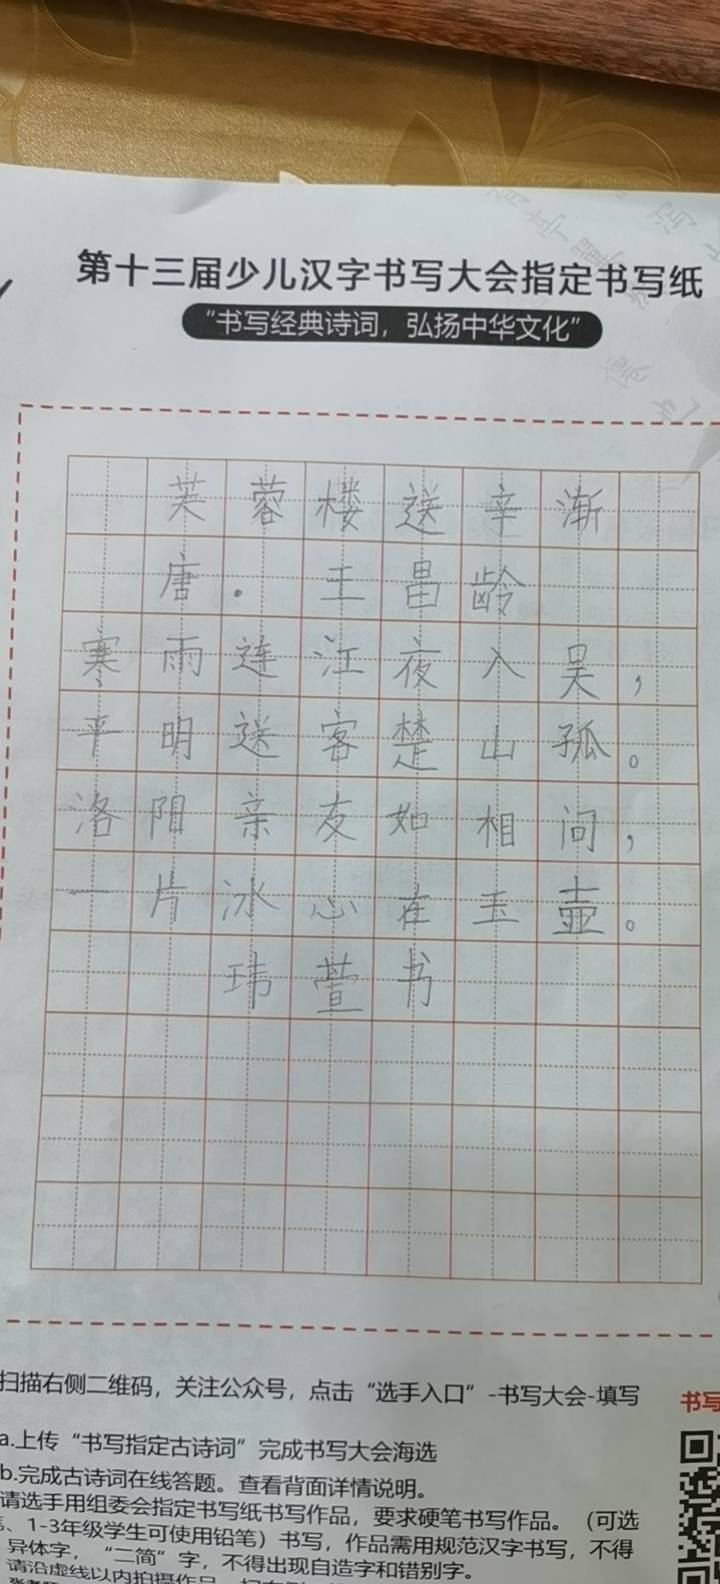 第十三届少儿汉字书写大会指定书写纸
“书写经典诗词，弘扬中华文化”
芙蓉楼送辛渐
唐。王昌龄
寒雨连江夜入吴，
平明送客楚山孤。
洛阳亲友如相问，
一片冰心在玉壶。
玮萱书
扫描右侧二维码，关注公众号，点击“选手入口”-书写大会-填写
书写
a.上传“书写指定古诗词”完成书写大会海选
b.完成古诗词在线答题。查看背面详情说明。
请选手用组委会指定书写纸书写作品，要求硬笔书写作品。（可选
、1-3年级学生可使用铅笔）书写，作品需用规范汉字书写，不得
异体字，“二简”字，不得出现自造字和错别字。
请沿虚线以内拍摄作品